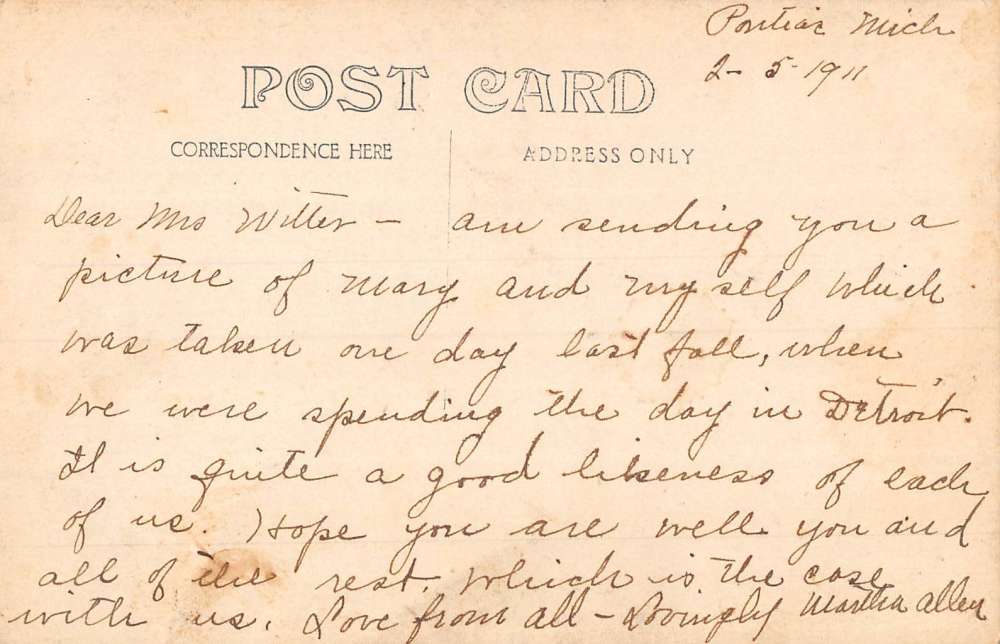 Pontiac Mich
2-5-1911
POST CARD
CORRESPONDENCE HERE
ADDRESS ONLY
Dear Mrs Witter – am sending you a
picture of Mary and my self which
was taken one day last fall, when
we were spending the day in Detroit.
It is quite a good likeness of each
of us. Hope you are well you and
all of the rest. Which is the case
with us. Love from all – Lovingly Martha Allen